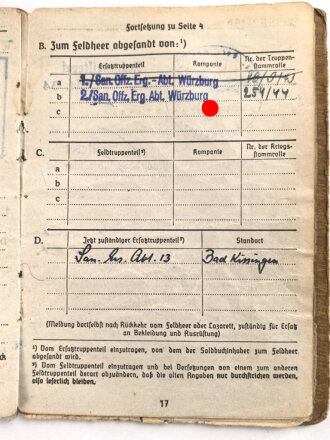 Fortsetzung zu Seite 4
B. Zum Feldheer abgesandt von:¹)
Ersatztruppenteil Kompanie Nr. der Truppen-
stammrolle
a 1./San. Offz. Erg.-Abt. Würzburg
b 2./San. Offz. Erg. Abt. Würzburg 254/44
c
C. Feldtruppenteil²) Kompanie Nr. der Kriegs-
stammrolle
a
b
c
D. Jetzt zuständiger Ersatztruppenteil²) Standort
San. Ers. Abt. 13 Bad Kissingen
(Meldung dortselbst nach Rückkehr vom Feldheer oder Lazarett, zuständig für Ersatz
an Bekleidung und Ausrüstung)
¹) Vom Ersatztruppenteil einzutragen, von dem der Soldbuchinhaber zum Feldheer
abgesandt wird.
²) Vom Feldtruppenteil einzutragen und bei Versetzungen von einem zum anderen
Feldtruppenteil derart abzuändern, daß die alten Angaben nur durchstrichen werden,
also leserlich bleiben.
17